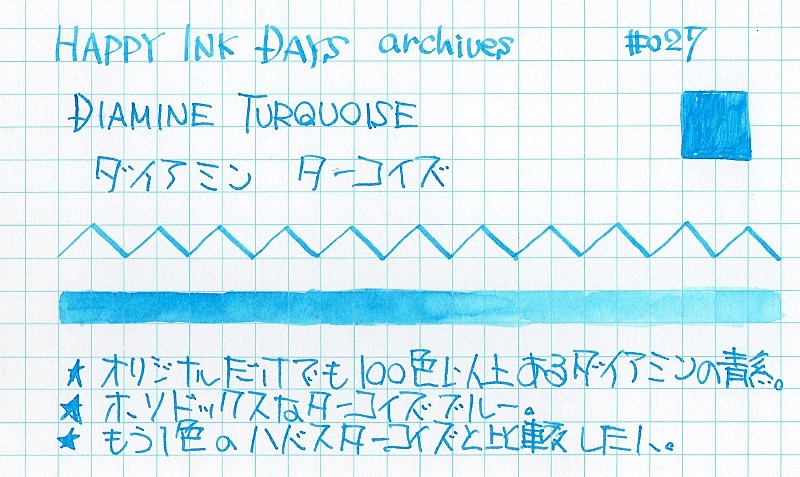 HAPPY INK DAYS archives #027
DIAMINE TURQUOISE
ダイアミン ターコイズ
★ オリジナルだけでも100色以上あるダイアミンの青系。
★ オーソドックスなターコイズブルー。
★ もう1色のハバスターコイズと比較したい。